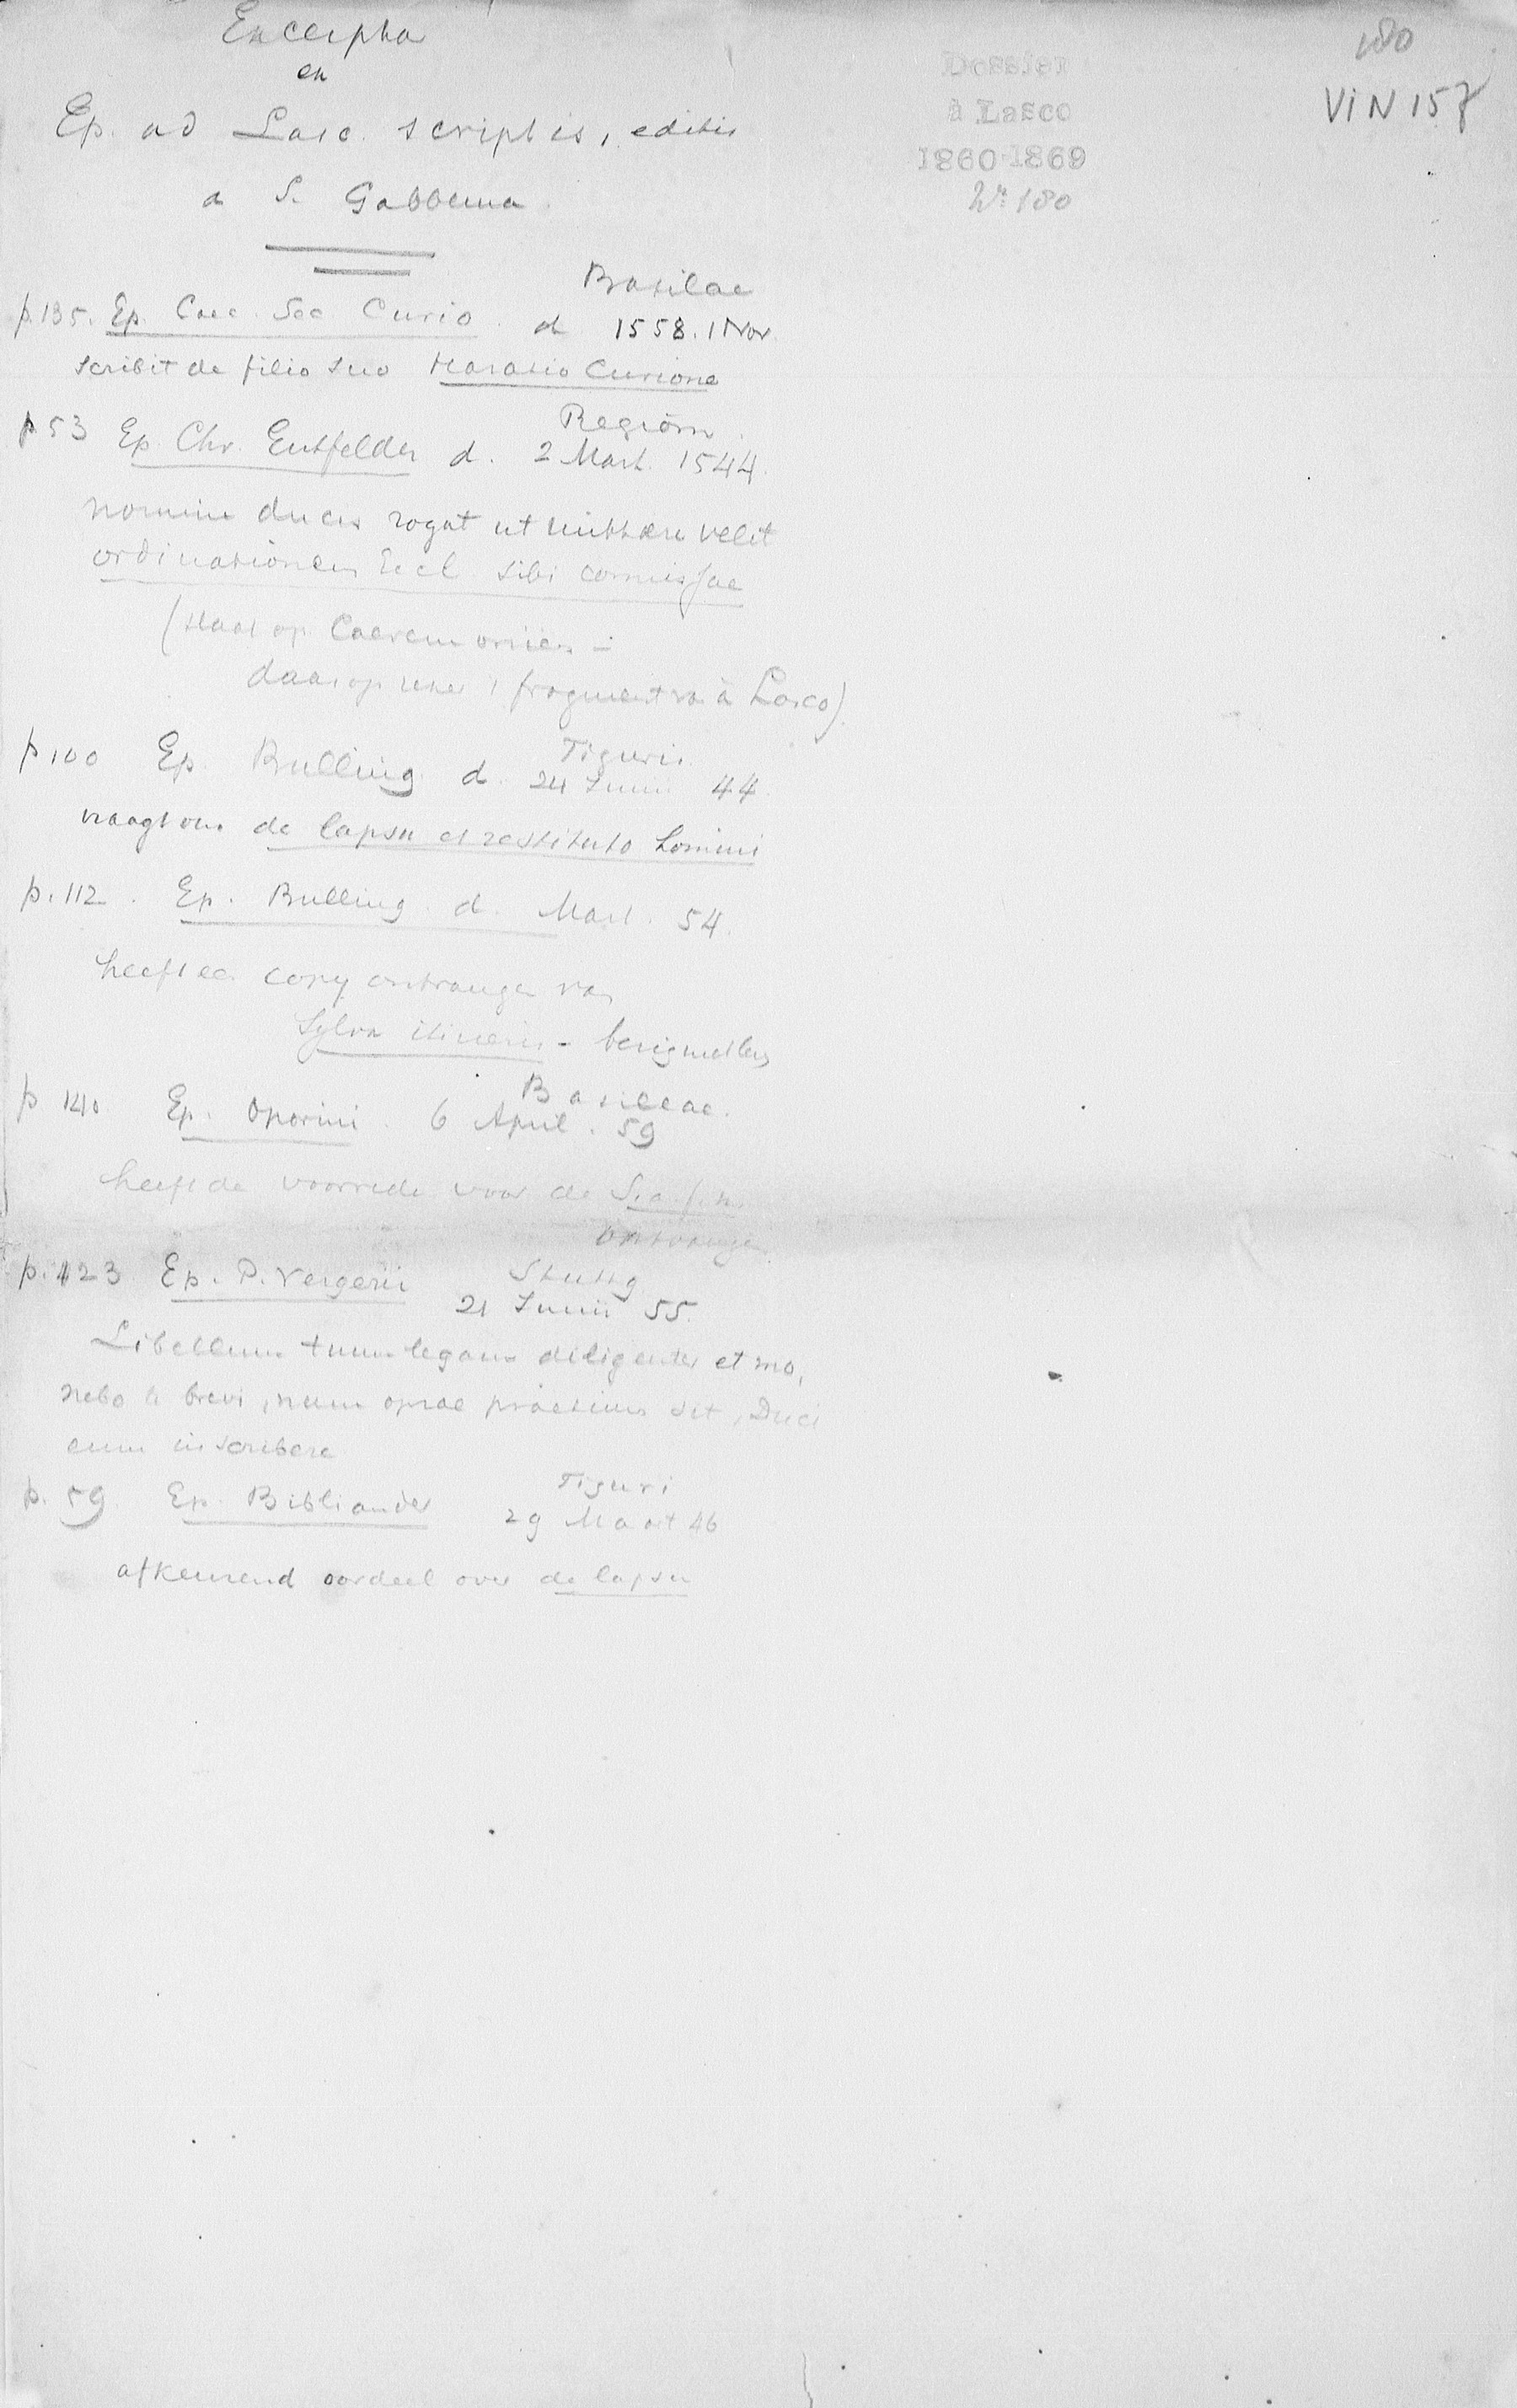 Excerpta
ex
Ep. ad Lasc. scriptis, editis
a S. Gabbema
Dossier
à Lasco
1860-1869
Nr. 180
180
VIN 157
Basileae
p. 135. Ep. Cael. Sec Curio d 1558. 1 Nov.
scribit de filio suo Horatio Curione
Regiom.
p 53 Ep. Chr. Entfelder d. 2 Mart. 1544.
nomine ducis rogat ut mittere velit
ordinationem Eccl sibi comissae
(slaat op Caeremoniën -
daarop zeker 't fragment van à Lasco).
Tiguri
p 100 Ep. Bulling. d. 24 Junii 44.
vraagt om de lapsu et restituto homini
p. 112. Ep. Bulling. d. Mart. 54.
heeft een copy ontvangen van
Sylva itineris -
Basileae.
p 140 Ep. Oporini. 6 April. 59
heeft de voorrede voor de
ontvangen
p. 123 Ep. P. Vergerii Stuttg
21 Junii 55.
Libellum tuum legam diligenter et mo,
nebo te brevi, num operae pretium sit, Duci
eum inscribere
Tiguri
p. 59. Ep. Bibliander 29 Maart 46
afkeurend oordeel over de lapsu